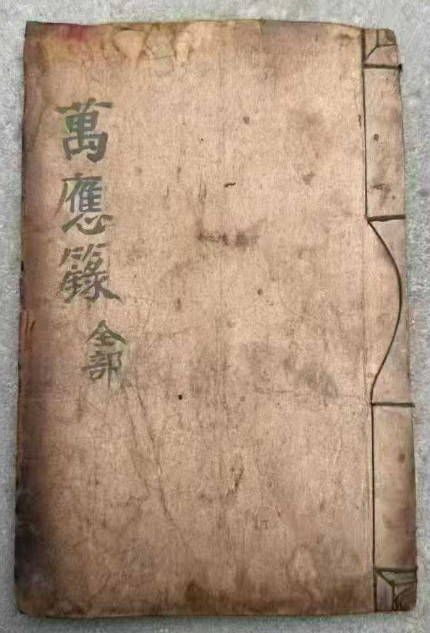 萬應籙全部